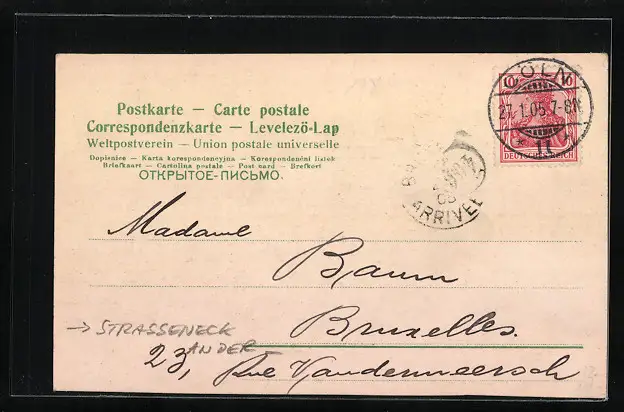 Postkarte — Carte postale
Correspondenzkarte — Levelező-Lap
Weltpostverein — Union postale universelle
Dopisnice — Karta korespondencyjna — Korespondenční lístek
Briefkaart — Cartolina postale — Post card — Brefkort
ОТКРЫТОЕ-ПИСЬМО.
10 10
DEUTSCHES REICH
CÖLN
27.1.05.7-8N.
* 11
ARRIVEE
05
Madame
Baum
Bruxelles.
→ STRASSENECK
AN DER
23, Rue Vandermeersch